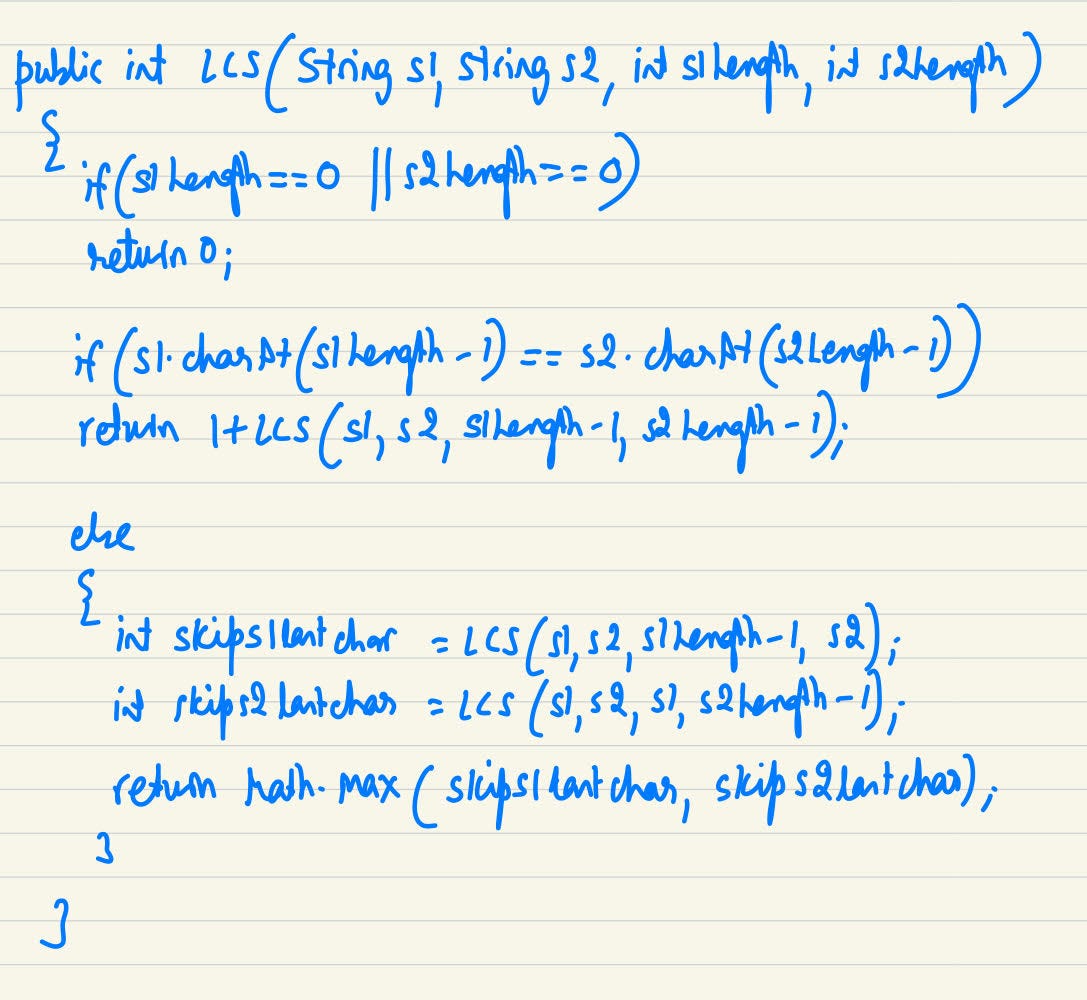 public int LCS(String s1, string s2, int s1Length, int s2Length)
{
if(s1Length==0 || s2Length==0)
return 0;
if(s1.charAt(s1Length-1) == s2.charAt(s2Length-1))
return 1+LCS(s1, s2, s1Length-1, s2Length-1);
else
{
int skips1lastchar = LCS(s1, s2, s1Length-1, s2);
int skips2lastchar = LCS(s1, s2, s1, s2Length-1);
return Math.max(skips1lastchar, skips2lastchar);
}
}